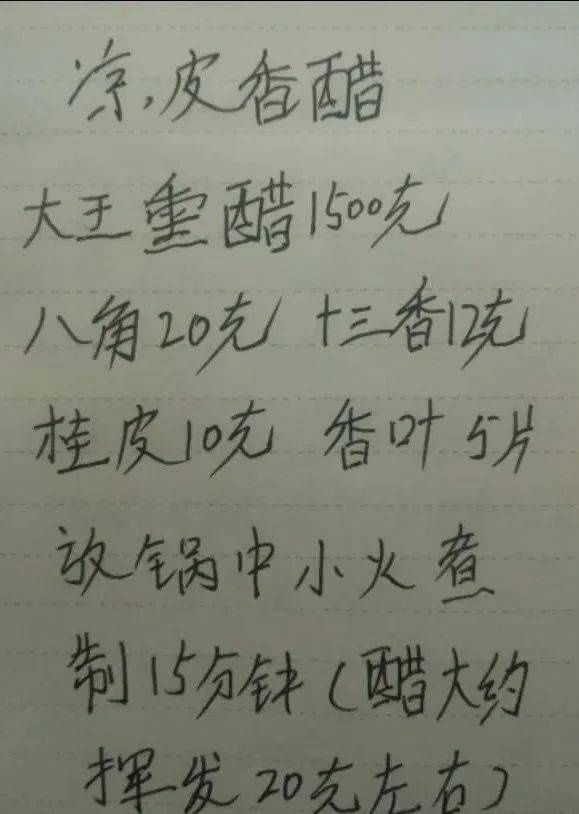 凉皮香醋
大王重醋1500克
八角20克 十三香12克
桂皮10克 香叶5片
放锅中小火煮
制15分钟(醋大约
挥发20克左右)